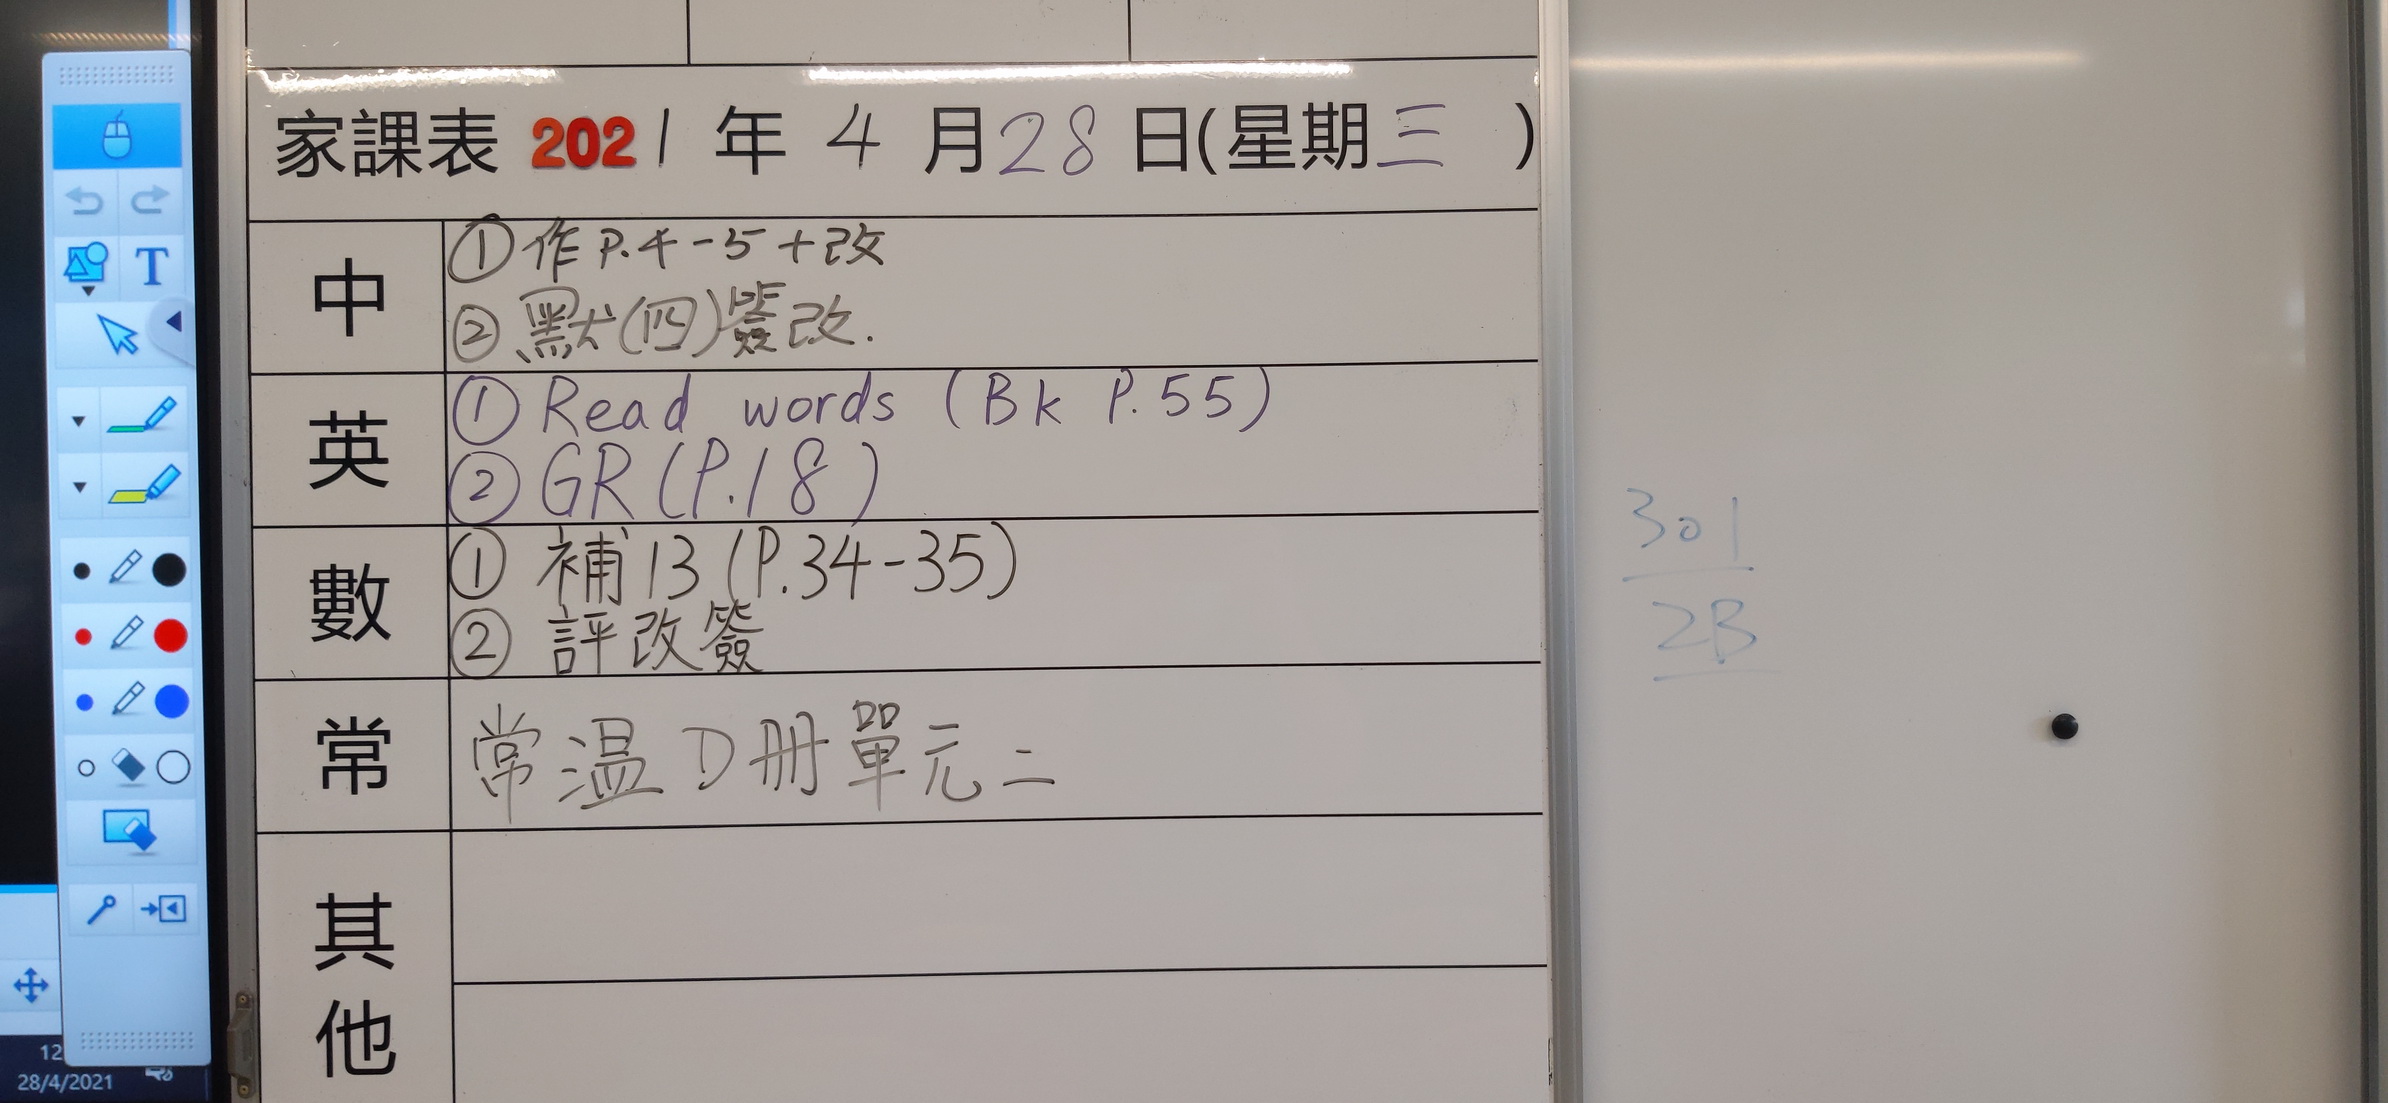 家課表 2021 年 4 月 28 日(星期三 )
中
① 作 P.4-5+改
② 默(四)簽改.
英
① Read words (Bk P.55)
② GR (P.18)
數
① 補13 (P.34-35)
② 評改簽
常
常溫D冊單元二
其他
301
2B
T
12
28/4/2021